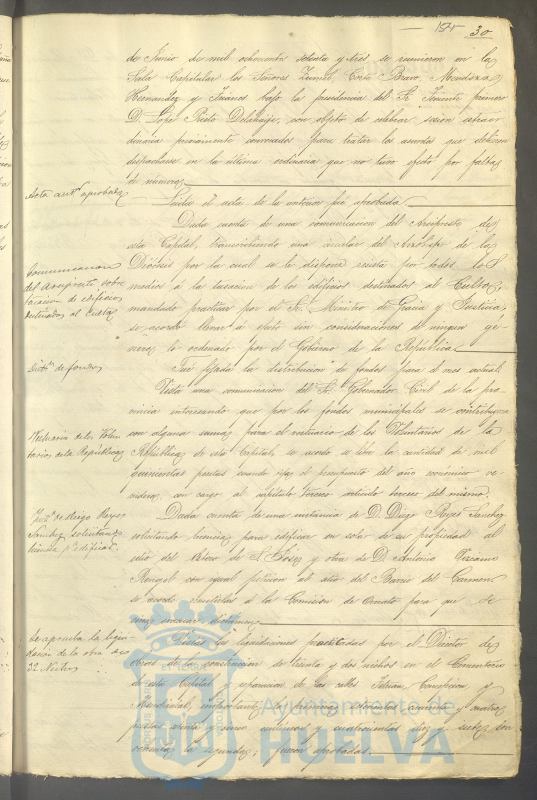 30
de Junio de mil ochocientos setenta y tres se reunieron en la
Sala Capitular los Señores Zumel, Corte Bravo, Mendoza
Hernandez y Juanes bajo la presidencia del Sr. Teniente primero
D. Lope Prieto Delahaije, con objeto de celebrar sesion extraor
dinaria previamente convocados para tratar los asuntos que debieron
despacharse en la ultima ordinaria que no tuvo efecto por falta
de número.
Acta antr. aprobada
Leida el acta de la anterior fué aprobada.
Comunicacion
del Arcipreste sobre
tasacion de edificios
destinados al Culto
Dada cuenta de una comunicacion del Arcipreste de
esta Capital, transcribiendo una circular del Arzobispo de la
Diócesis por la cual se le dispone resista por todos los
medios á la tasacion de los edificios destinados al Culto,
mandada practicar por el Sr. Ministro de Gracia y Justicia,
se acordo llevar á efecto sin consideraciones de ningun gé
nero lo ordenado por el Gobierno de la República.
de fondos
Fué fijada la distribucion de fondos para el mes actual.
Vestuario de los Volun
tarios de la República
Vista una comunicacion del Sr. Gobernador Civil de la pro
vincia interesando que por los fondos municipales se contribuya
con alguna suma para el vestuario de los Voluntarios de la
República de esta Capital, se acordo se libre la cantidad de mil
quinientas pesetas cuando rija el presupuesto del año económico ve
nidero, con cargo al capítulo tercero artículo tercero del mismo.
de Diego Reyes
Sanchez solicitando
licencia pa. edificar
Dada cuenta de una instancia de D. Diego Reyes Sanchez
solicitando licencia para edificar un solar de su propiedad al
sitio del de S. José y otra de D. Antonio
Rengel con igual peticion al sitio del Barrio del Carmen
se acordo remitirlas á la Comision de Ornato para que se
sirva evacuar dictamen.
Se aprueba la liqui
dacion de la obra de
32 Nichos
Vistas las liquidaciones practicadas por el Director de
obras de la construccion de treinta y dos nichos en el Cementerio
de esta Capital y reparacion de las calles Fabrica, Concepcion y
importantes la primera ochocientas cuarenta y cuatro
pesetas céntimos y cuatrocientas diez y siete
céntimos la segunda, fueron aprobadas.
Ayuntamiento de
HUELVA